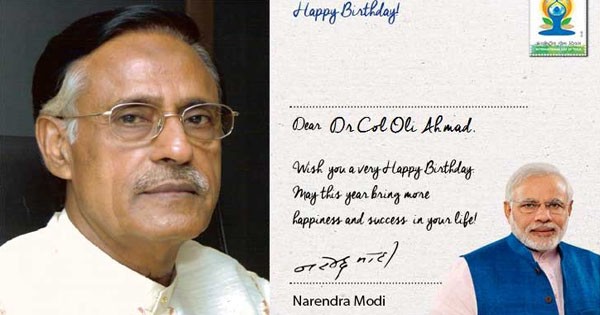 Happy Birthday!
INTERNATIONAL DAY OF YOGA
Dear Dr Col Oli Ahmad.
Wish you a very Happy Birthday
May this year bring more
happiness and success in your life!
Narendra Modi